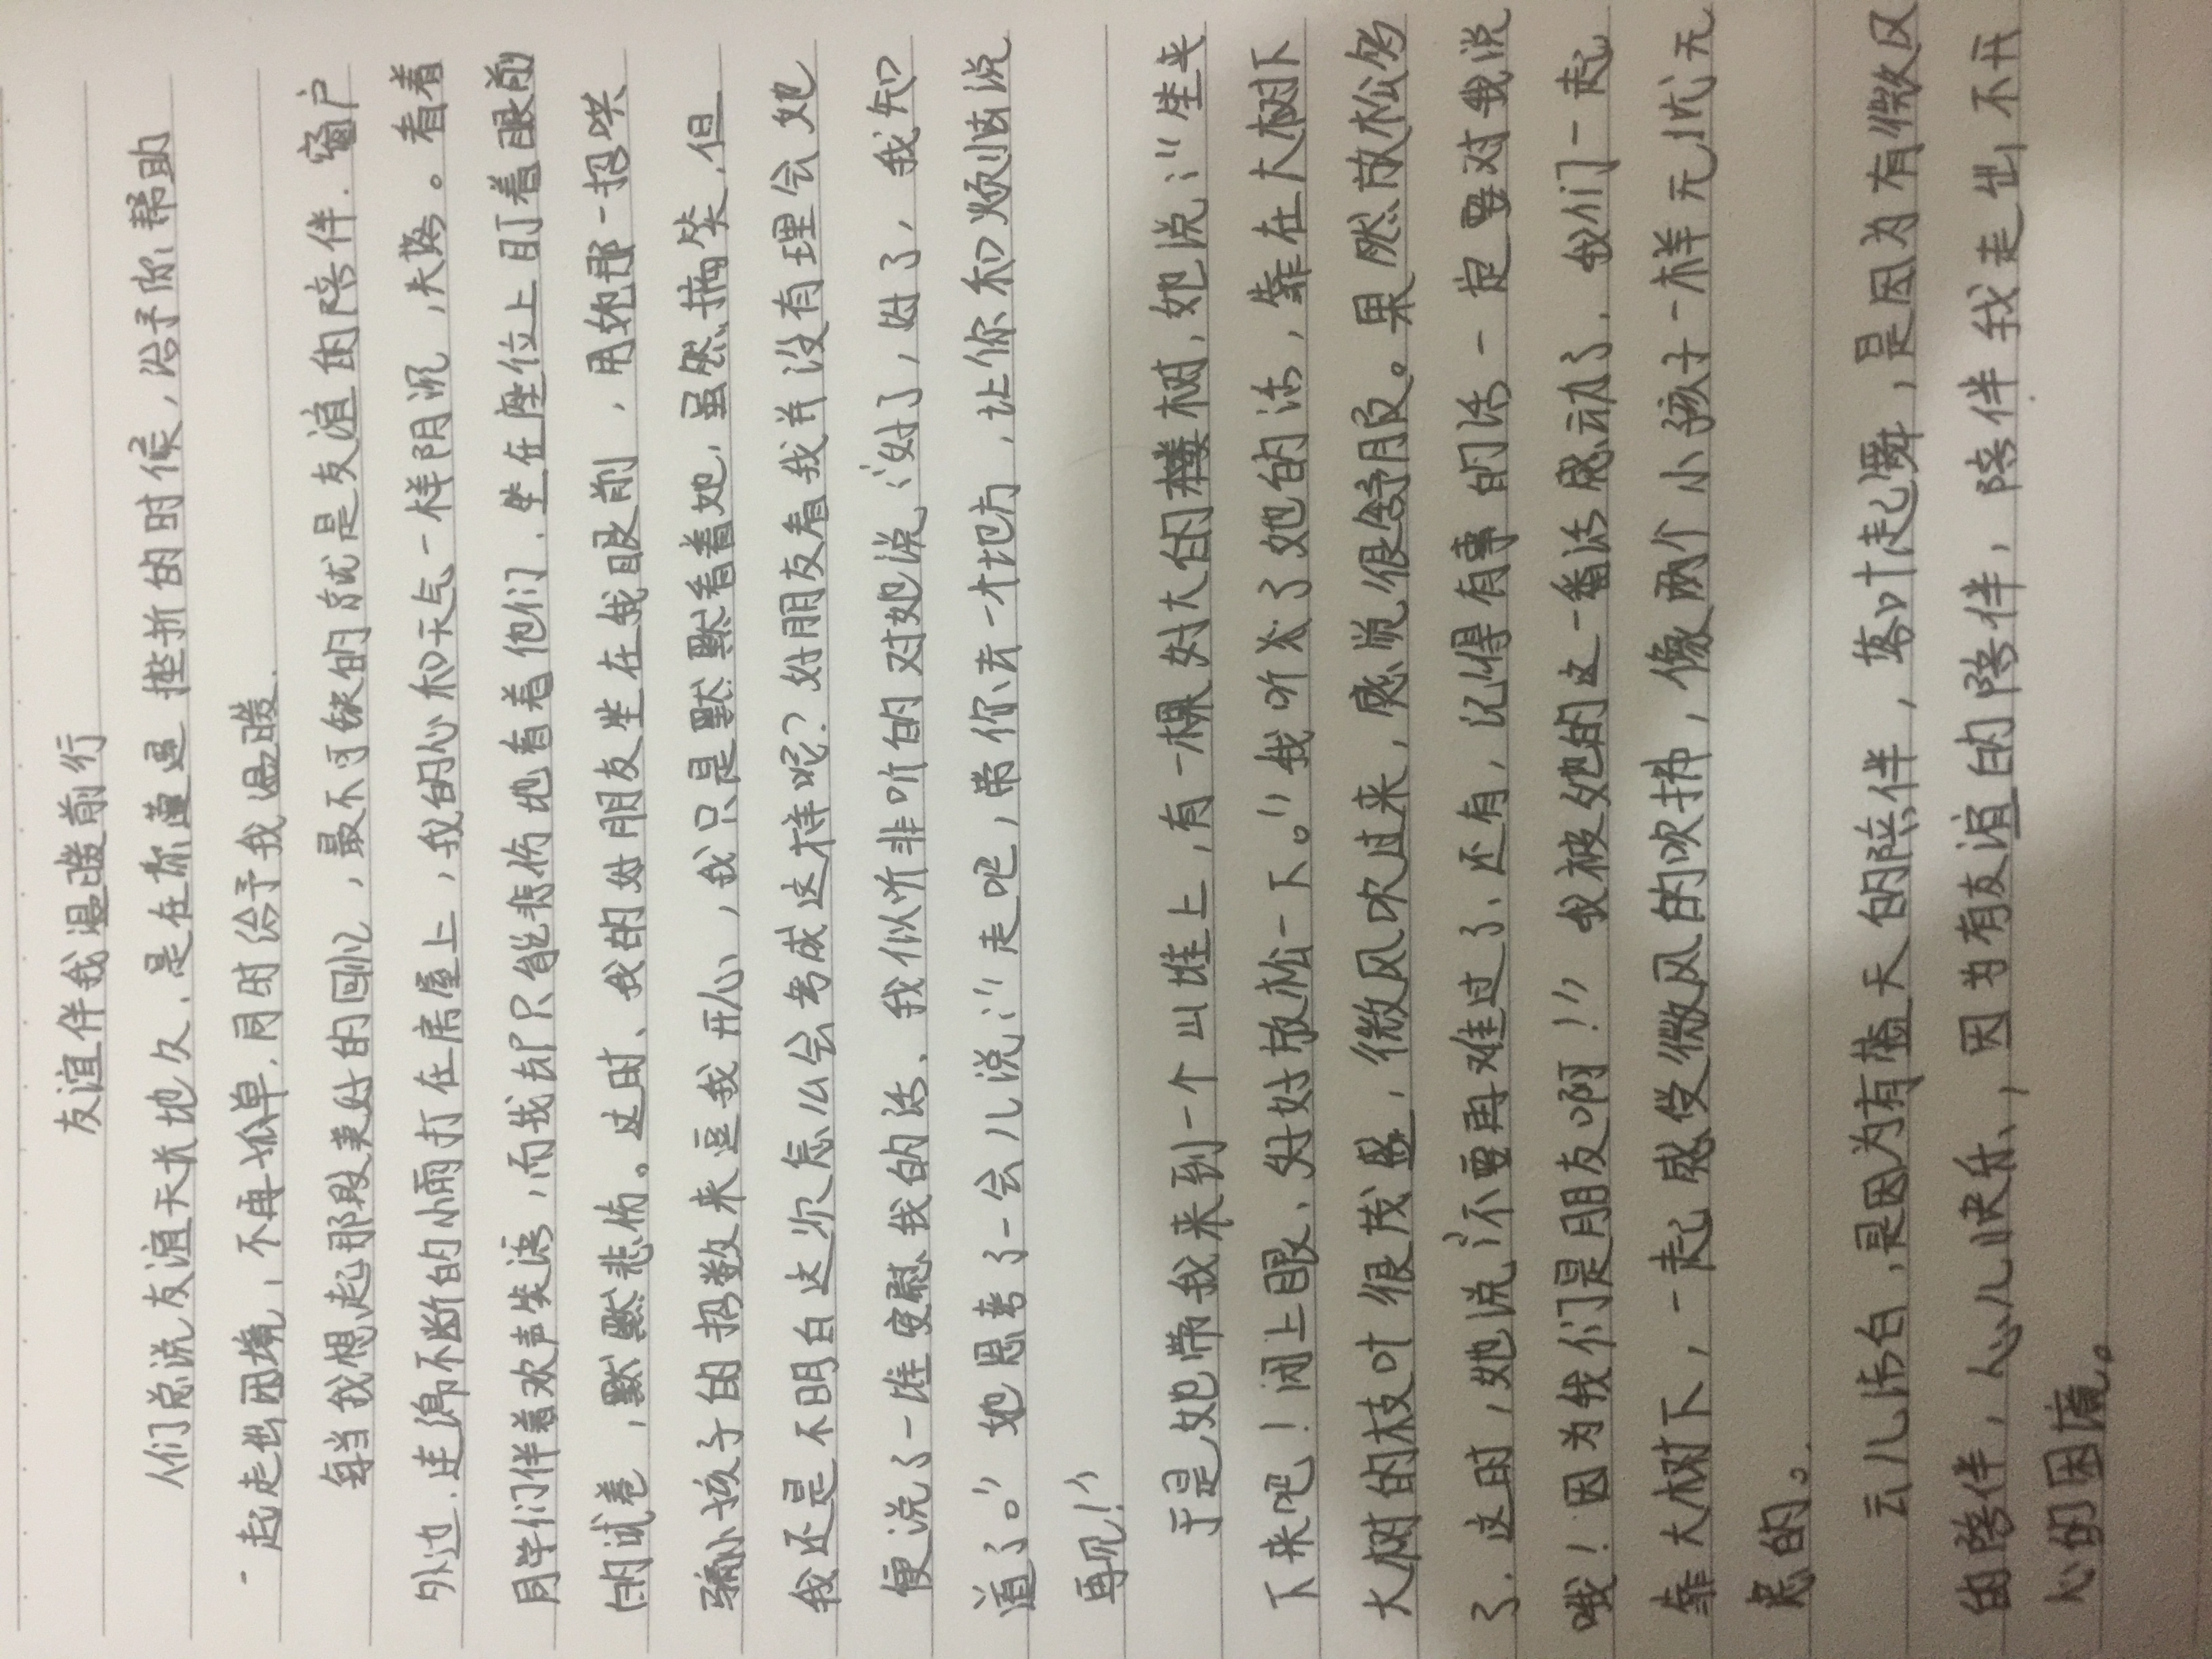 友谊伴我温暖前行
人们总说友谊天长地久,是在你遭遇挫折的时候,给予你帮助
一起走出困境,不再孤单.同时给予我温暖.
每当我想起那段美好的回忆,最不可缺的就是友谊的陪伴.窗户
外边.连绵不断的小雨打在房屋上,我的心和天气一样阴沉,失落。看着
同学们伴着欢声笑语,而我却只能悲伤地看着他们.坐在座位上盯着眼前
的试卷,默默悲伤。这时、我的好朋友坐在我眼前,用她那一招哄
骗小孩子的招数来逗我开心,我只是默默看着她,虽然搞笑,但
我还是不明白这次怎么会考成这样呢?好朋友看我并没有理会她
便说了一堆安慰我的话、我似听非听的对她说:“好了,好了,我知
道了。”她思考了一会儿说:“走吧,带你去一个地方,让你和烦恼说
再见!”
于是她带我来到一个山堆上,有一棵好大的楼树,她说:“坐
下来吧!闭上眼、好好放松一下。”我听从了她的话,靠在大树下
大树的枝叶很茂盛,微风吹过来,感觉很舒服。果然放松多
了.这时,她说:“不要再难过了、还有,记得有事的话一定要对我说
哦!因为我们是朋友啊!”我被她的这一番话感动了,我们一起
靠大树下,一起感受微风的吹拂,像两个小孩子一样无忧无
虑的。
云儿洁白,是因为有蓝天的陪伴,落叶起舞,是因为有微风
的陪伴,人儿快乐,因为有友谊的陪伴,陪伴我走出不开
心的困境。